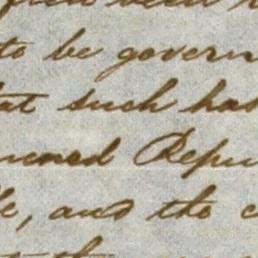 to be govern
at such has
nened Repu
le, and the c